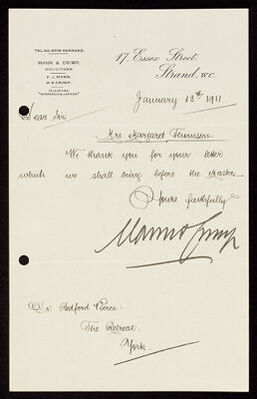 17, Essex Street,
Strand, W.C.
MANN & CRIMP,
SOLICITORS.
F. J. MANN.
W. R. CRIMP.
TELEGRAMS,
January 13th 1911
Dear Sir,
Margaret Thomson.
We thank you for your letter
which we shall bring before the Master.
Yours faithfully
Mann & Crimp
Dr Bedford Pierce
The Retreat
York.